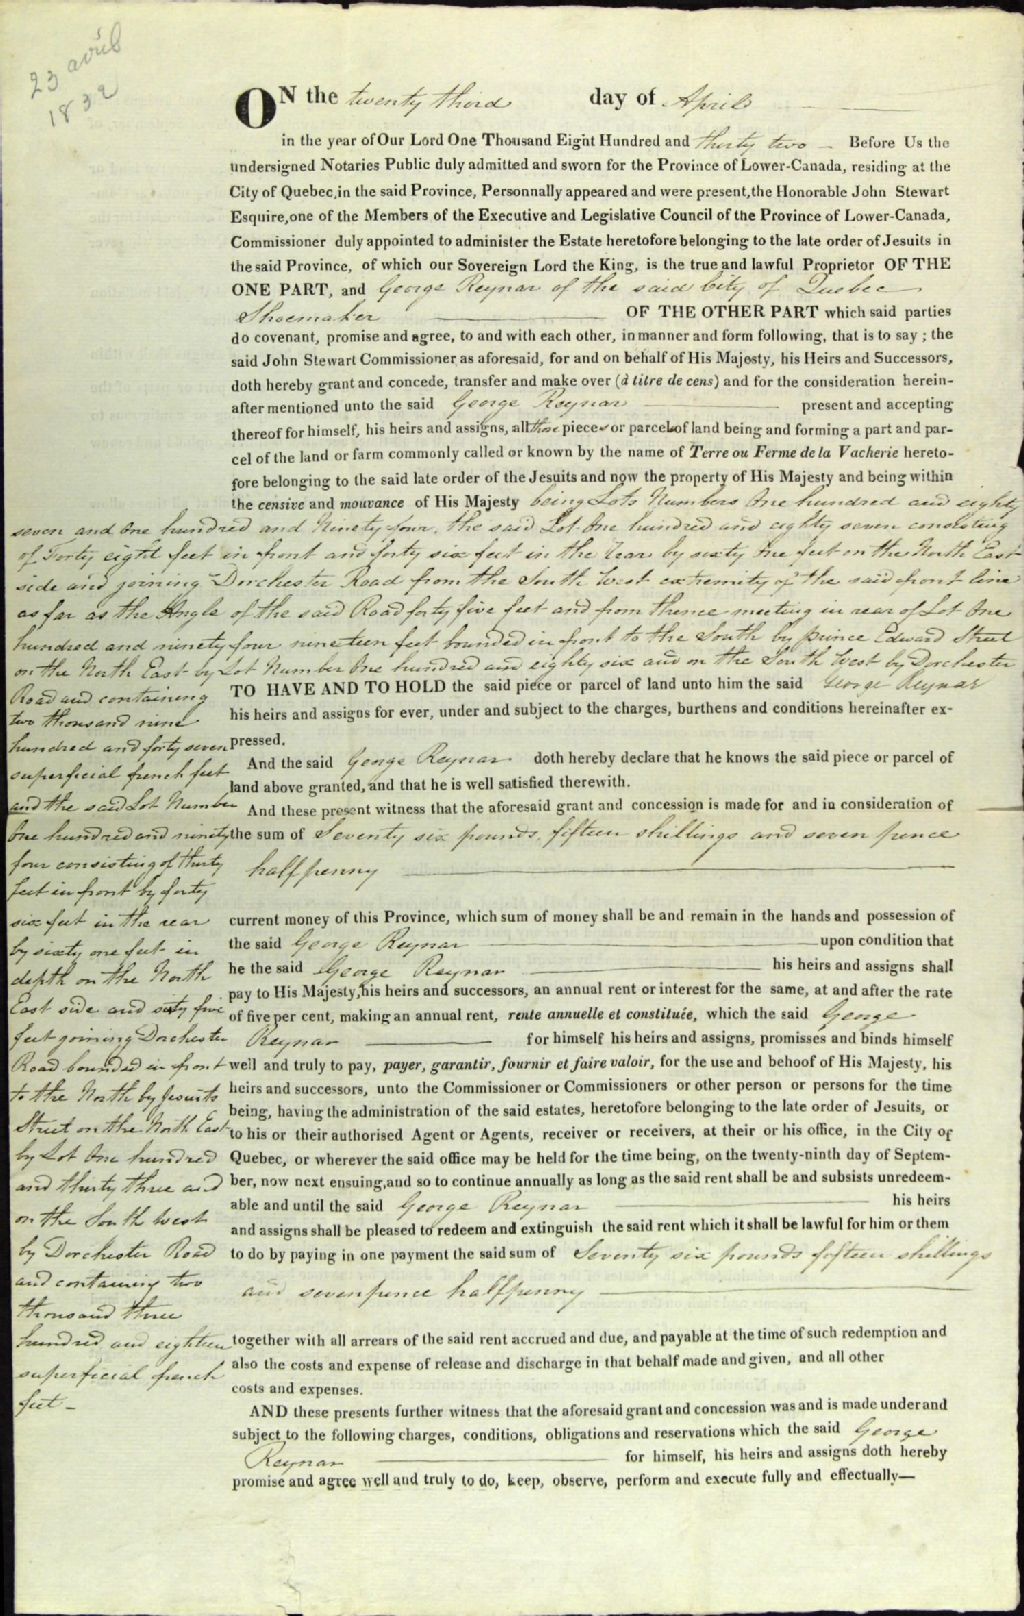 23 avril
1832
ON the twenty third day of April
in the year of Our Lord One Thousand Eight Hundred and thirty two Before Us the
undersigned Notaries Public duly admitted and sworn for the Province of Lower-Canada, residing at the
City of Quebec, in the said Province, Personnally appeared and were present, the Honorable John Stewart
Esquire, one of the Members of the Executive and Legislative Council of the Province of Lower-Canada,
Commissioner duly appointed to administer the Estate heretofore belonging to the late order of Jesuits in
the said Province, of which our Sovereign Lord the King, is the true and lawful Proprietor OF THE
ONE PART, and George Reynar of the said City of Quebec
Shoemaker OF THE OTHER PART which said parties
do covenant, promise and agree, to and with each other, in manner and form following, that is to say; the
said John Stewart Commissioner as aforesaid, for and on behalf of His Majesty, his Heirs and Successors,
doth hereby grant and concede, transfer and make over (à titre de cens) and for the consideration herein-
after mentioned unto the said George Reynar present and accepting
thereof for himself, his heirs and assigns, all those pieces or parcels of land being and forming a part and par-
cel of the land or farm commonly called or known by the name of Terre ou Ferme de la Vacherie hereto-
fore belonging to the said late order of the Jesuits and now the property of His Majesty and being within
the censive and mouvance of His Majesty being Lots Numbers One hundred and eighty
seven and One hundred and Ninety four, the said Lot One hundred and eighty seven consisting
of Forty eight feet in front and forty six feet in the rear by sixty one feet on the North East
side and joining Dorchester Road from the South West extremity of the said front line
as far as the Angle of the said Road forty five feet and from thence meeting in rear of Lot One
hundred and ninety four nineteen feet bounded in front to the South by Prince Edward Street
on the North East by Lot Number One hundred and eighty six and on the South West by Dorchester
Road and containing
two thousand nine
hundred and forty seven
superficial french feet
and the said Lot Number
One hundred and ninety
four consisting of thirty
feet in front by forty
six feet in the rear
by sixty one feet in
depth on the North
East side and sixty five
feet joining Dorchester
Road bounded in front
to the North by Jesuits
Street on the North East
by Lot One hundred
and thirty three and
on the South West
by Dorchester Road
and containing two
thousand three
hundred and eighteen
superficial french
feet
TO HAVE AND TO HOLD the said piece or parcel of land unto him the said George Reynar
his heirs and assigns for ever, under and subject to the charges, burthens and conditions hereinafter ex-
pressed.
And the said George Reynar doth hereby declare that he knows the said piece or parcel of
land above granted, and that he is well satisfied therewith.
And these present witness that the aforesaid grant and concession is made for and in consideration of
the sum of Seventy six pounds, fifteen shillings and seven pence
halfpenny
current money of this Province, which sum of money shall be and remain in the hands and possession of
the said George Reynar upon condition that
he the said George Reynar his heirs and assigns shall
pay to His Majesty, his heirs and successors, an annual rent or interest for the same, at and after the rate
of five per cent, making an annual rent, rente annuelle et constituée, which the said George
Reynar for himself his heirs and assigns, promisses and binds himself
well and truly to pay, payer, garantir, fournir et faire valoir, for the use and behoof of His Majesty, his
heirs and successors, unto the Commissioner or Commissioners or other person or persons for the time
being, having the administration of the said estates, heretofore belonging to the late order of Jesuits, or
to his or their authorised Agent or Agents, receiver or receivers, at their or his office, in the City of
Quebec, or wherever the said office may be held for the time being, on the twenty-ninth day of Septem-
ber, now next ensuing, and so to continue annually as long as the said rent shall be and subsists unredeem-
able and until the said George Reynar his heirs
and assigns shall be pleased to redeem and extinguish the said rent which it shall be lawful for him or them
to do by paying in one payment the said sum of Seventy six pounds fifteen shillings
and seven pence halfpenny
together with all arrears of the said rent accrued and due, and payable at the time of such redemption and
also the costs and expense of release and discharge in that behalf made and given, and all other
costs and expenses.
AND these presents further witness that the aforesaid grant and concession was and is made under and
subject to the following charges, conditions, obligations and reservations which the said George
Reynar for himself, his heirs and assigns doth hereby
promise and agree well and truly to do, keep, observe, perform and execute fully and effectually—